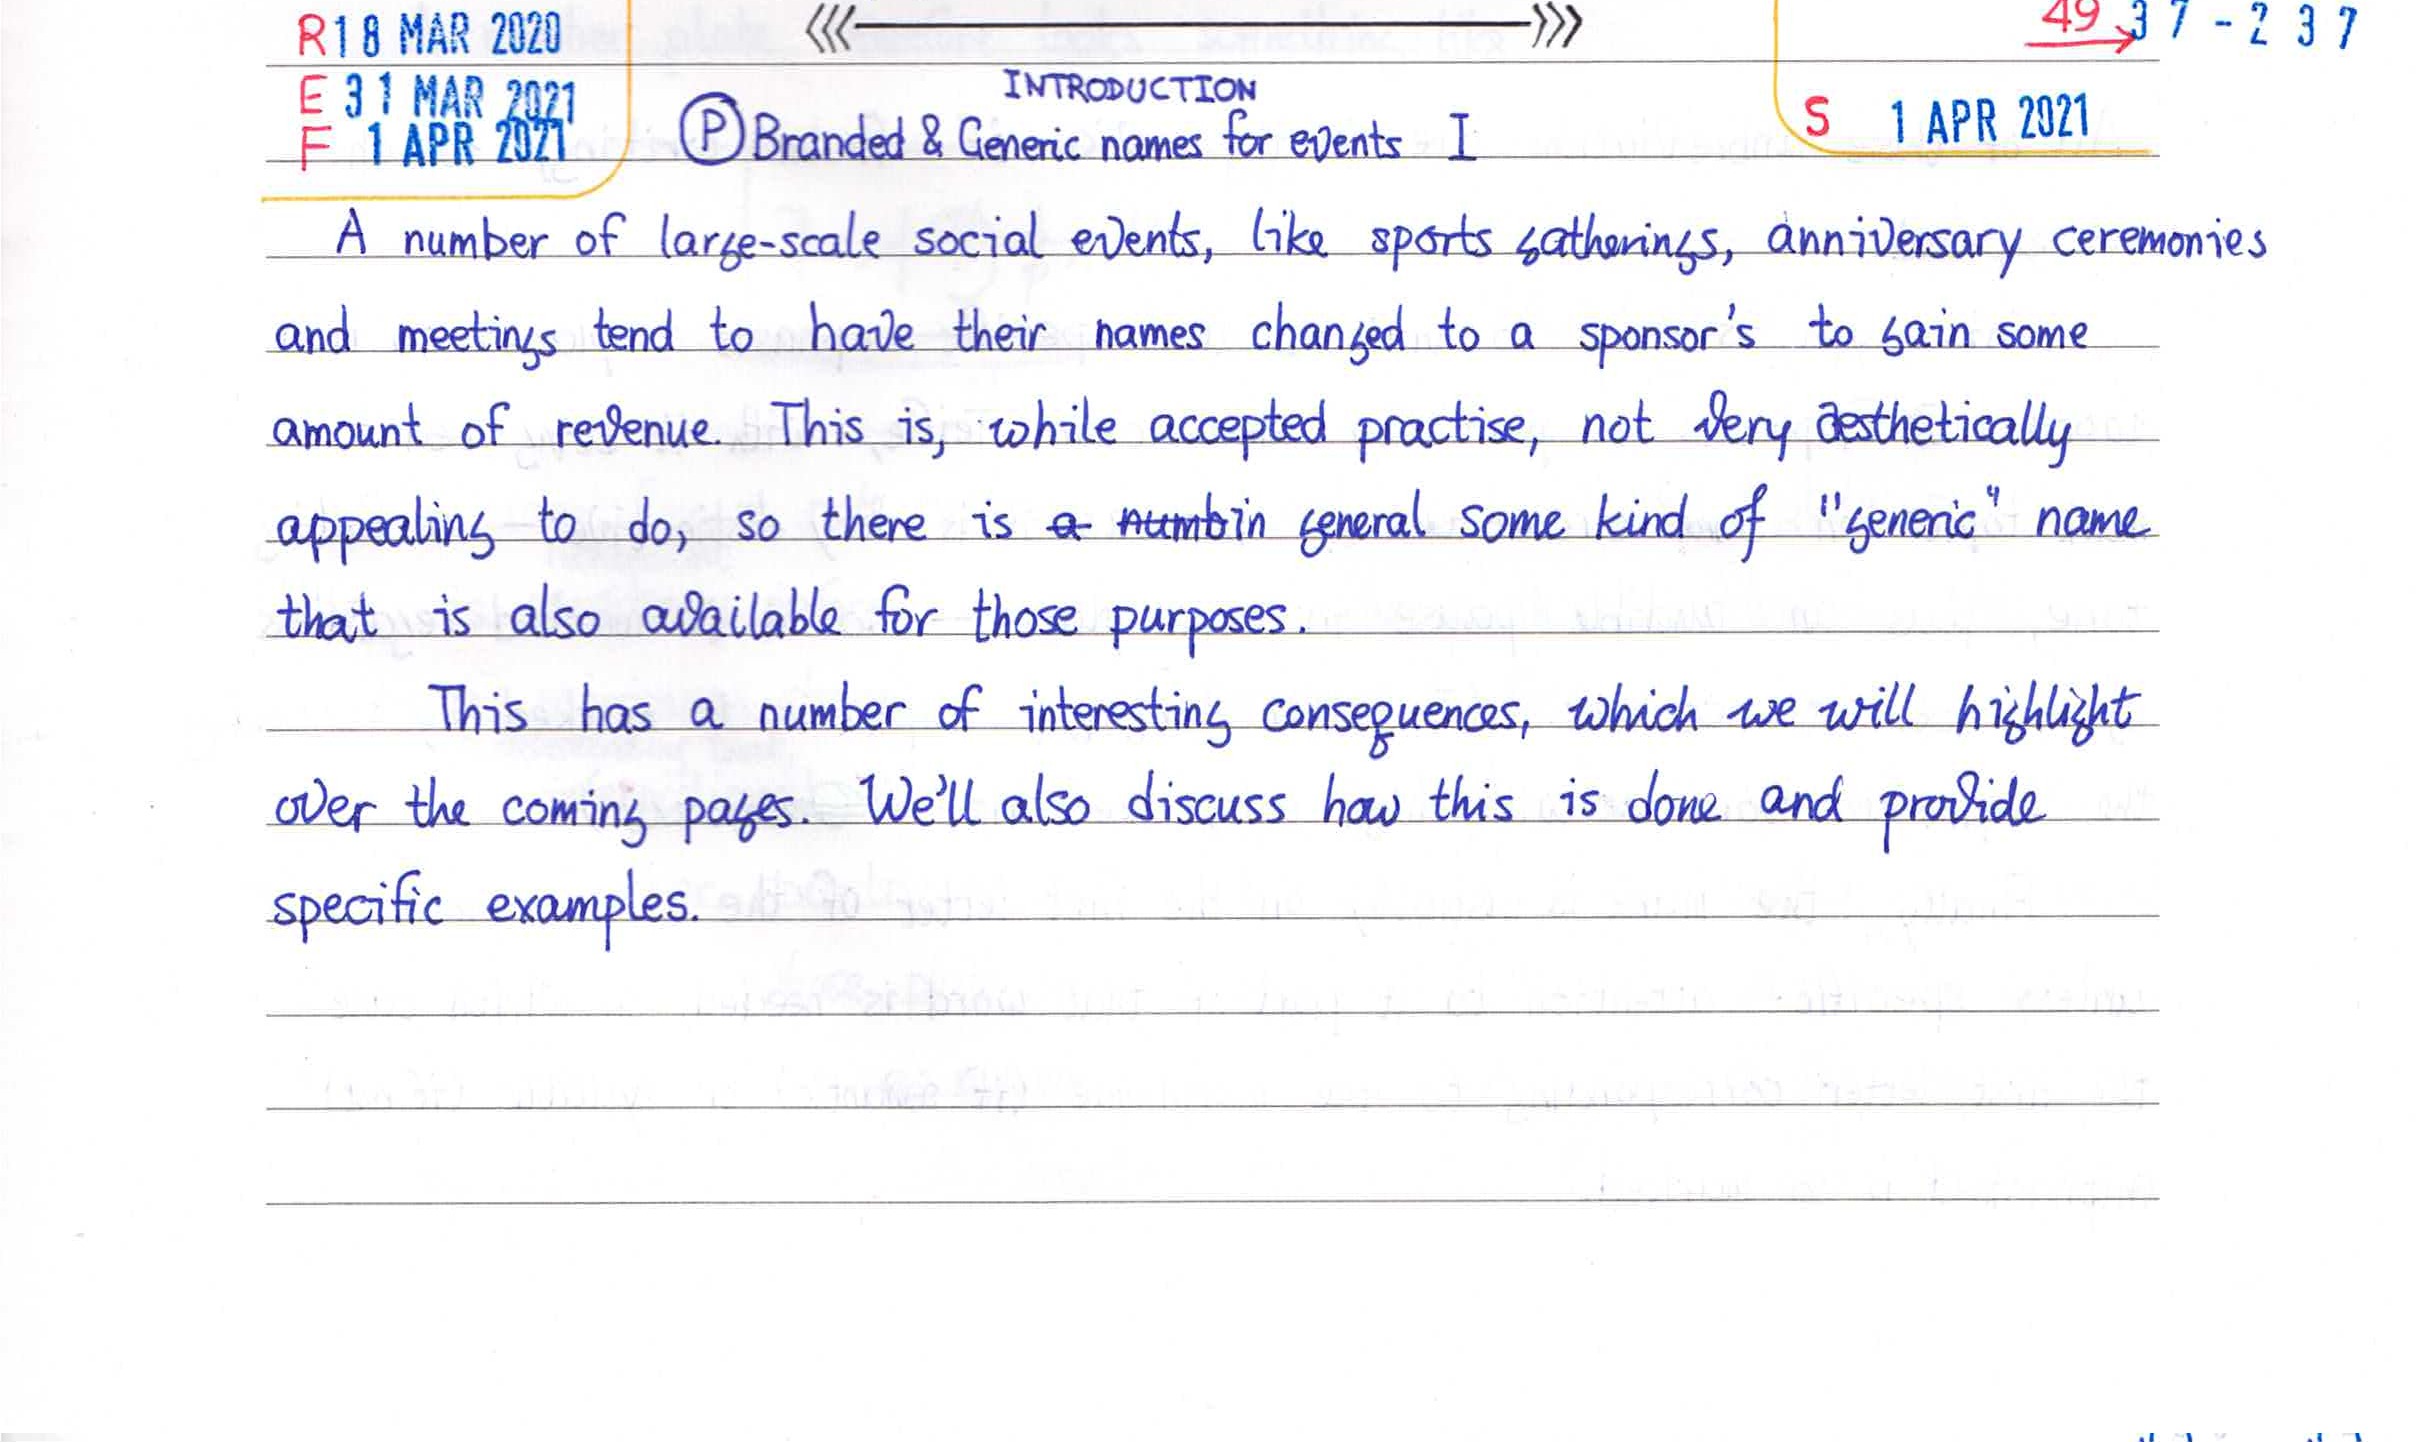 R18 MAR 2020
49 37-237
INTRODUCTION
E 31 MAR 2021
F 1 APR 2021
P Branded & Generic names for events I
S 1 APR 2021
A number of large-scale social events, like sports gatherings, anniversary ceremonies
and meetings tend to have their names changed to a sponsor's to gain some
amount of revenue. This is, while accepted practise, not very aesthetically
appealing to do, so there is a numb in general some kind of "generic" name
that is also available for those purposes.
This has a number of interesting consequences, which we will highlight
over the coming pages. We'll also discuss how this is done and provide
specific examples.